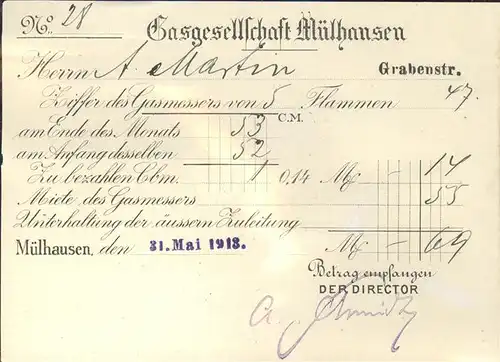 No. 28 Gasgesellschaft Mülhausen
Herrn A. Martin Grabenstr.
Ziffer des Gasmessers von 5 Flammen 47.
C.M.
am Ende des Monats 53
am Anfang desselben 52
Zu bezahlen Cbm. 1 0,14 M - 14
Miete des Gasmessers 55
Unterhaltung der äussern Zuleitung
Mülhausen, den 31. Mai 1913. M - 69
Betrag empfangen
DER DIRECTOR